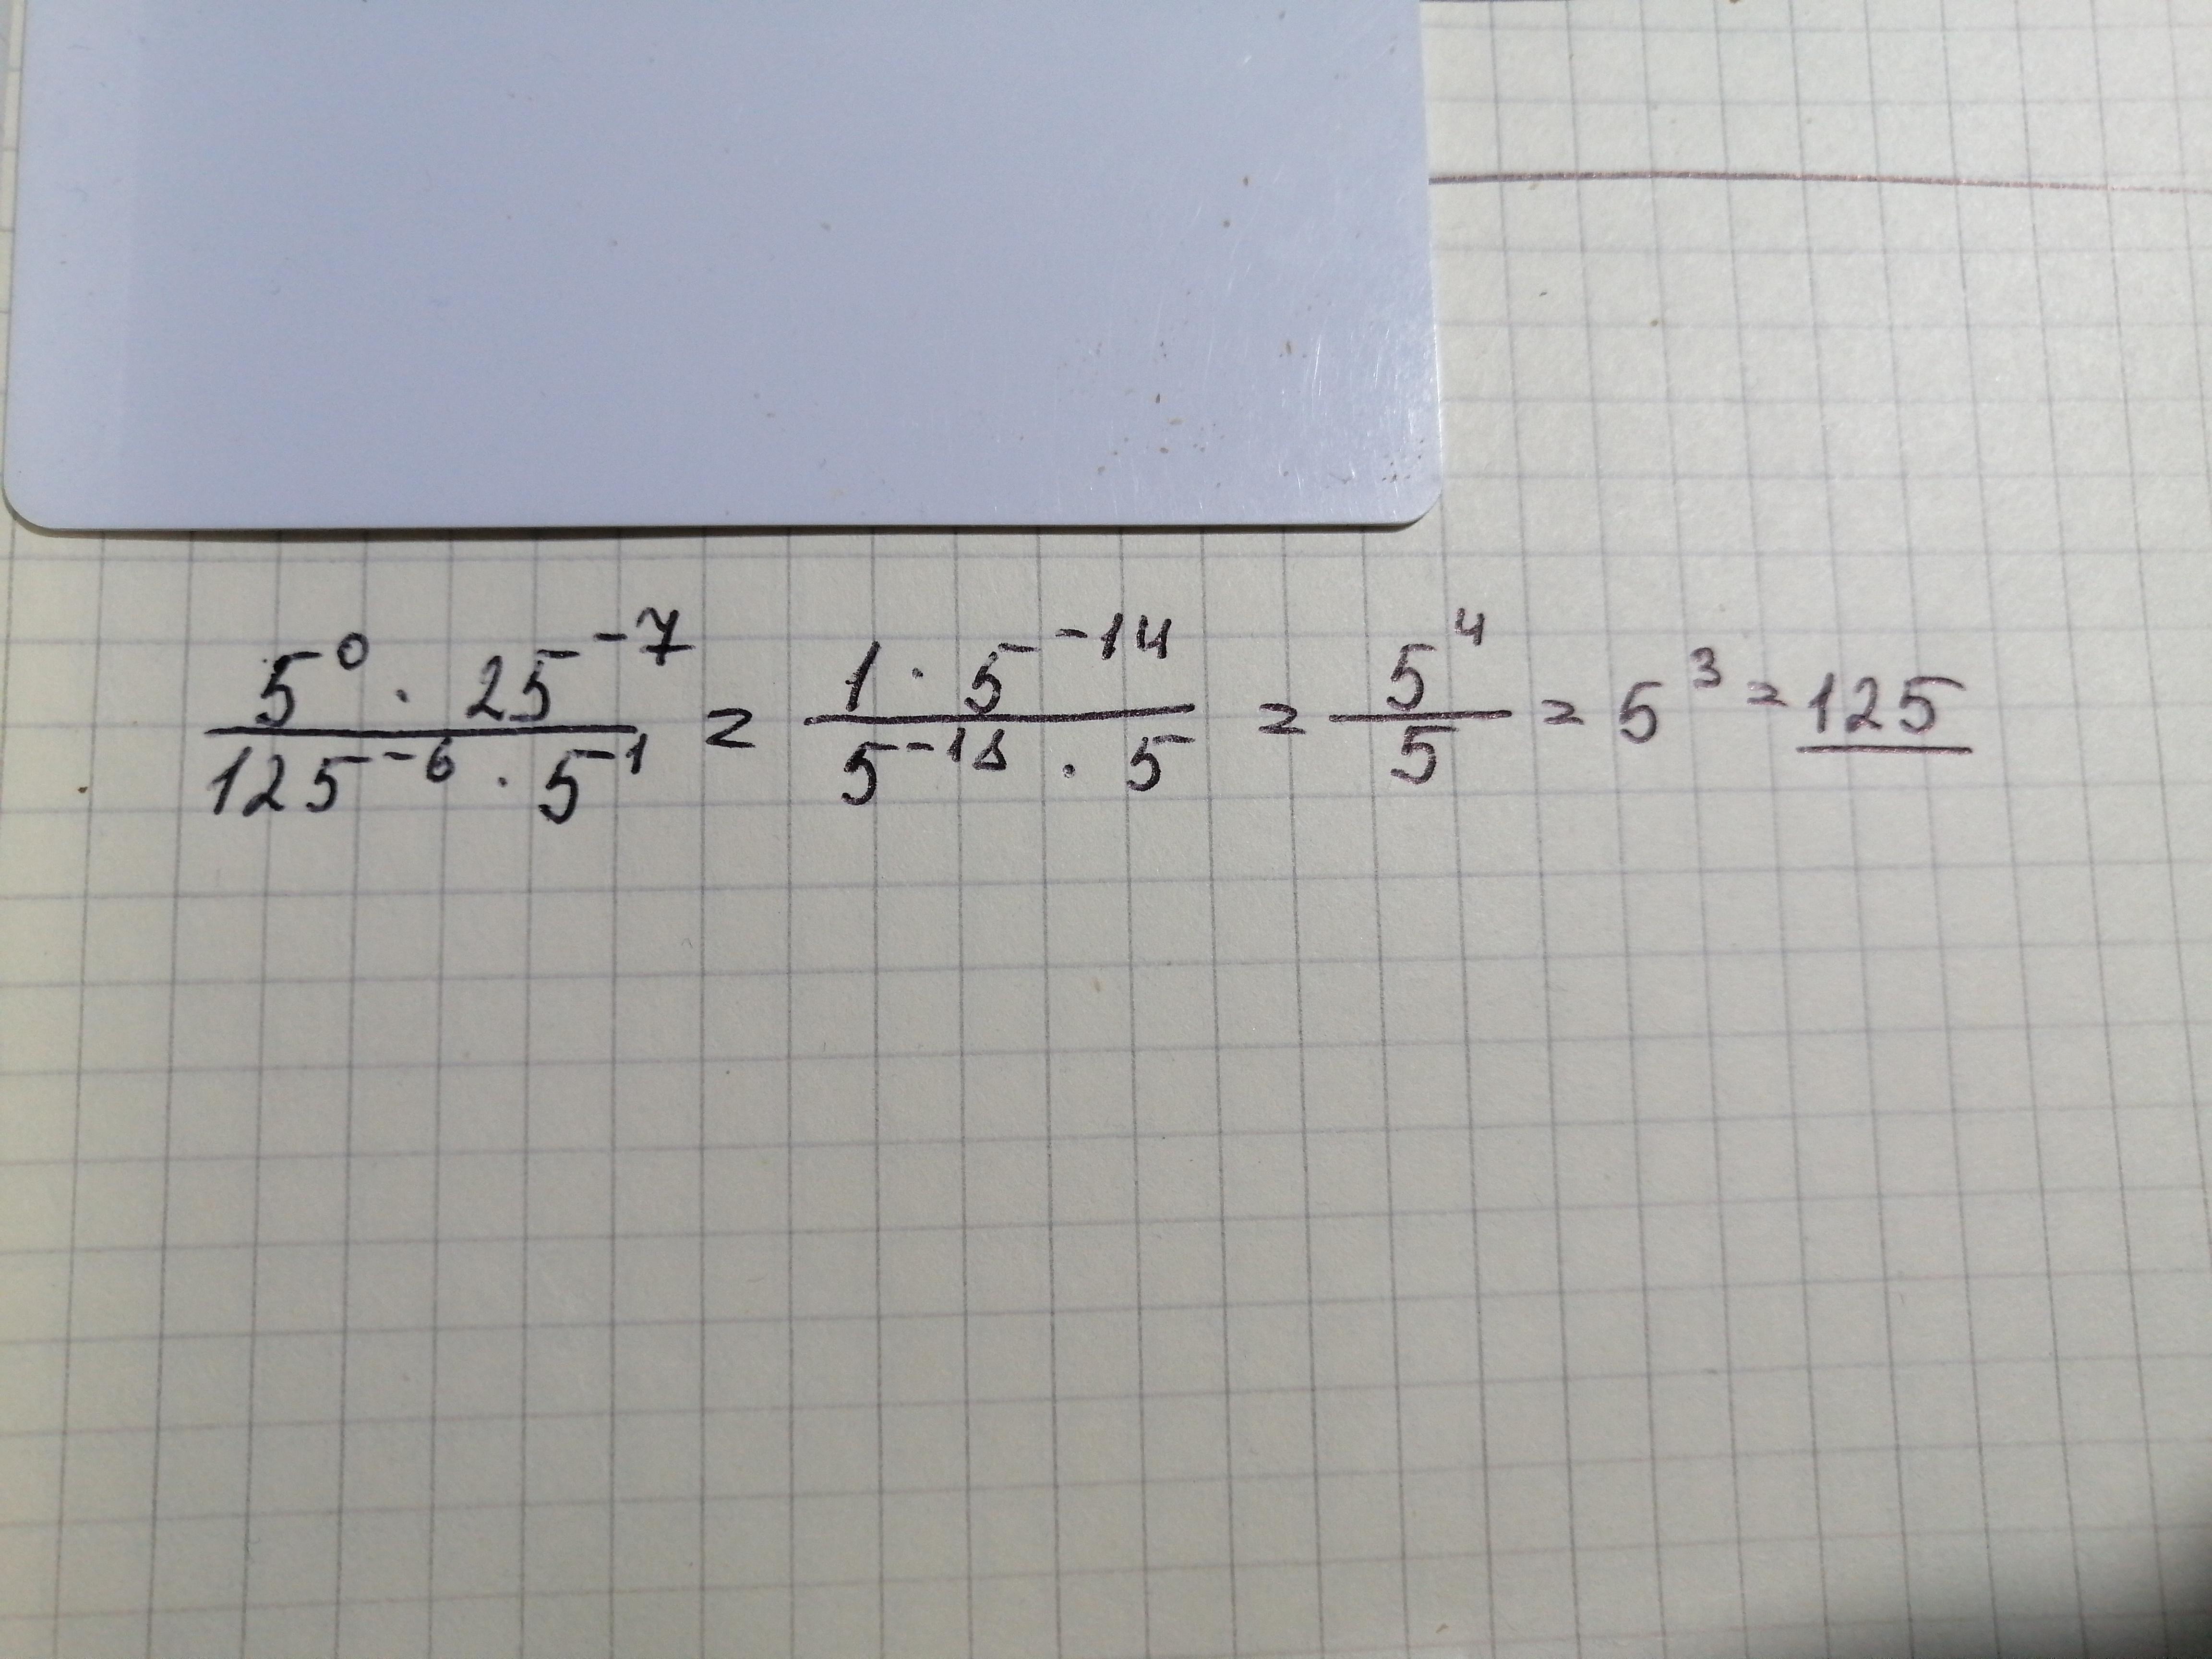 5⁰ · 25⁻⁷ / 125⁻⁶ · 5¹ = 1 · 5⁻¹⁴ / 5⁻¹⁸ · 5 = 5⁴ / 5 = 5³ = 125